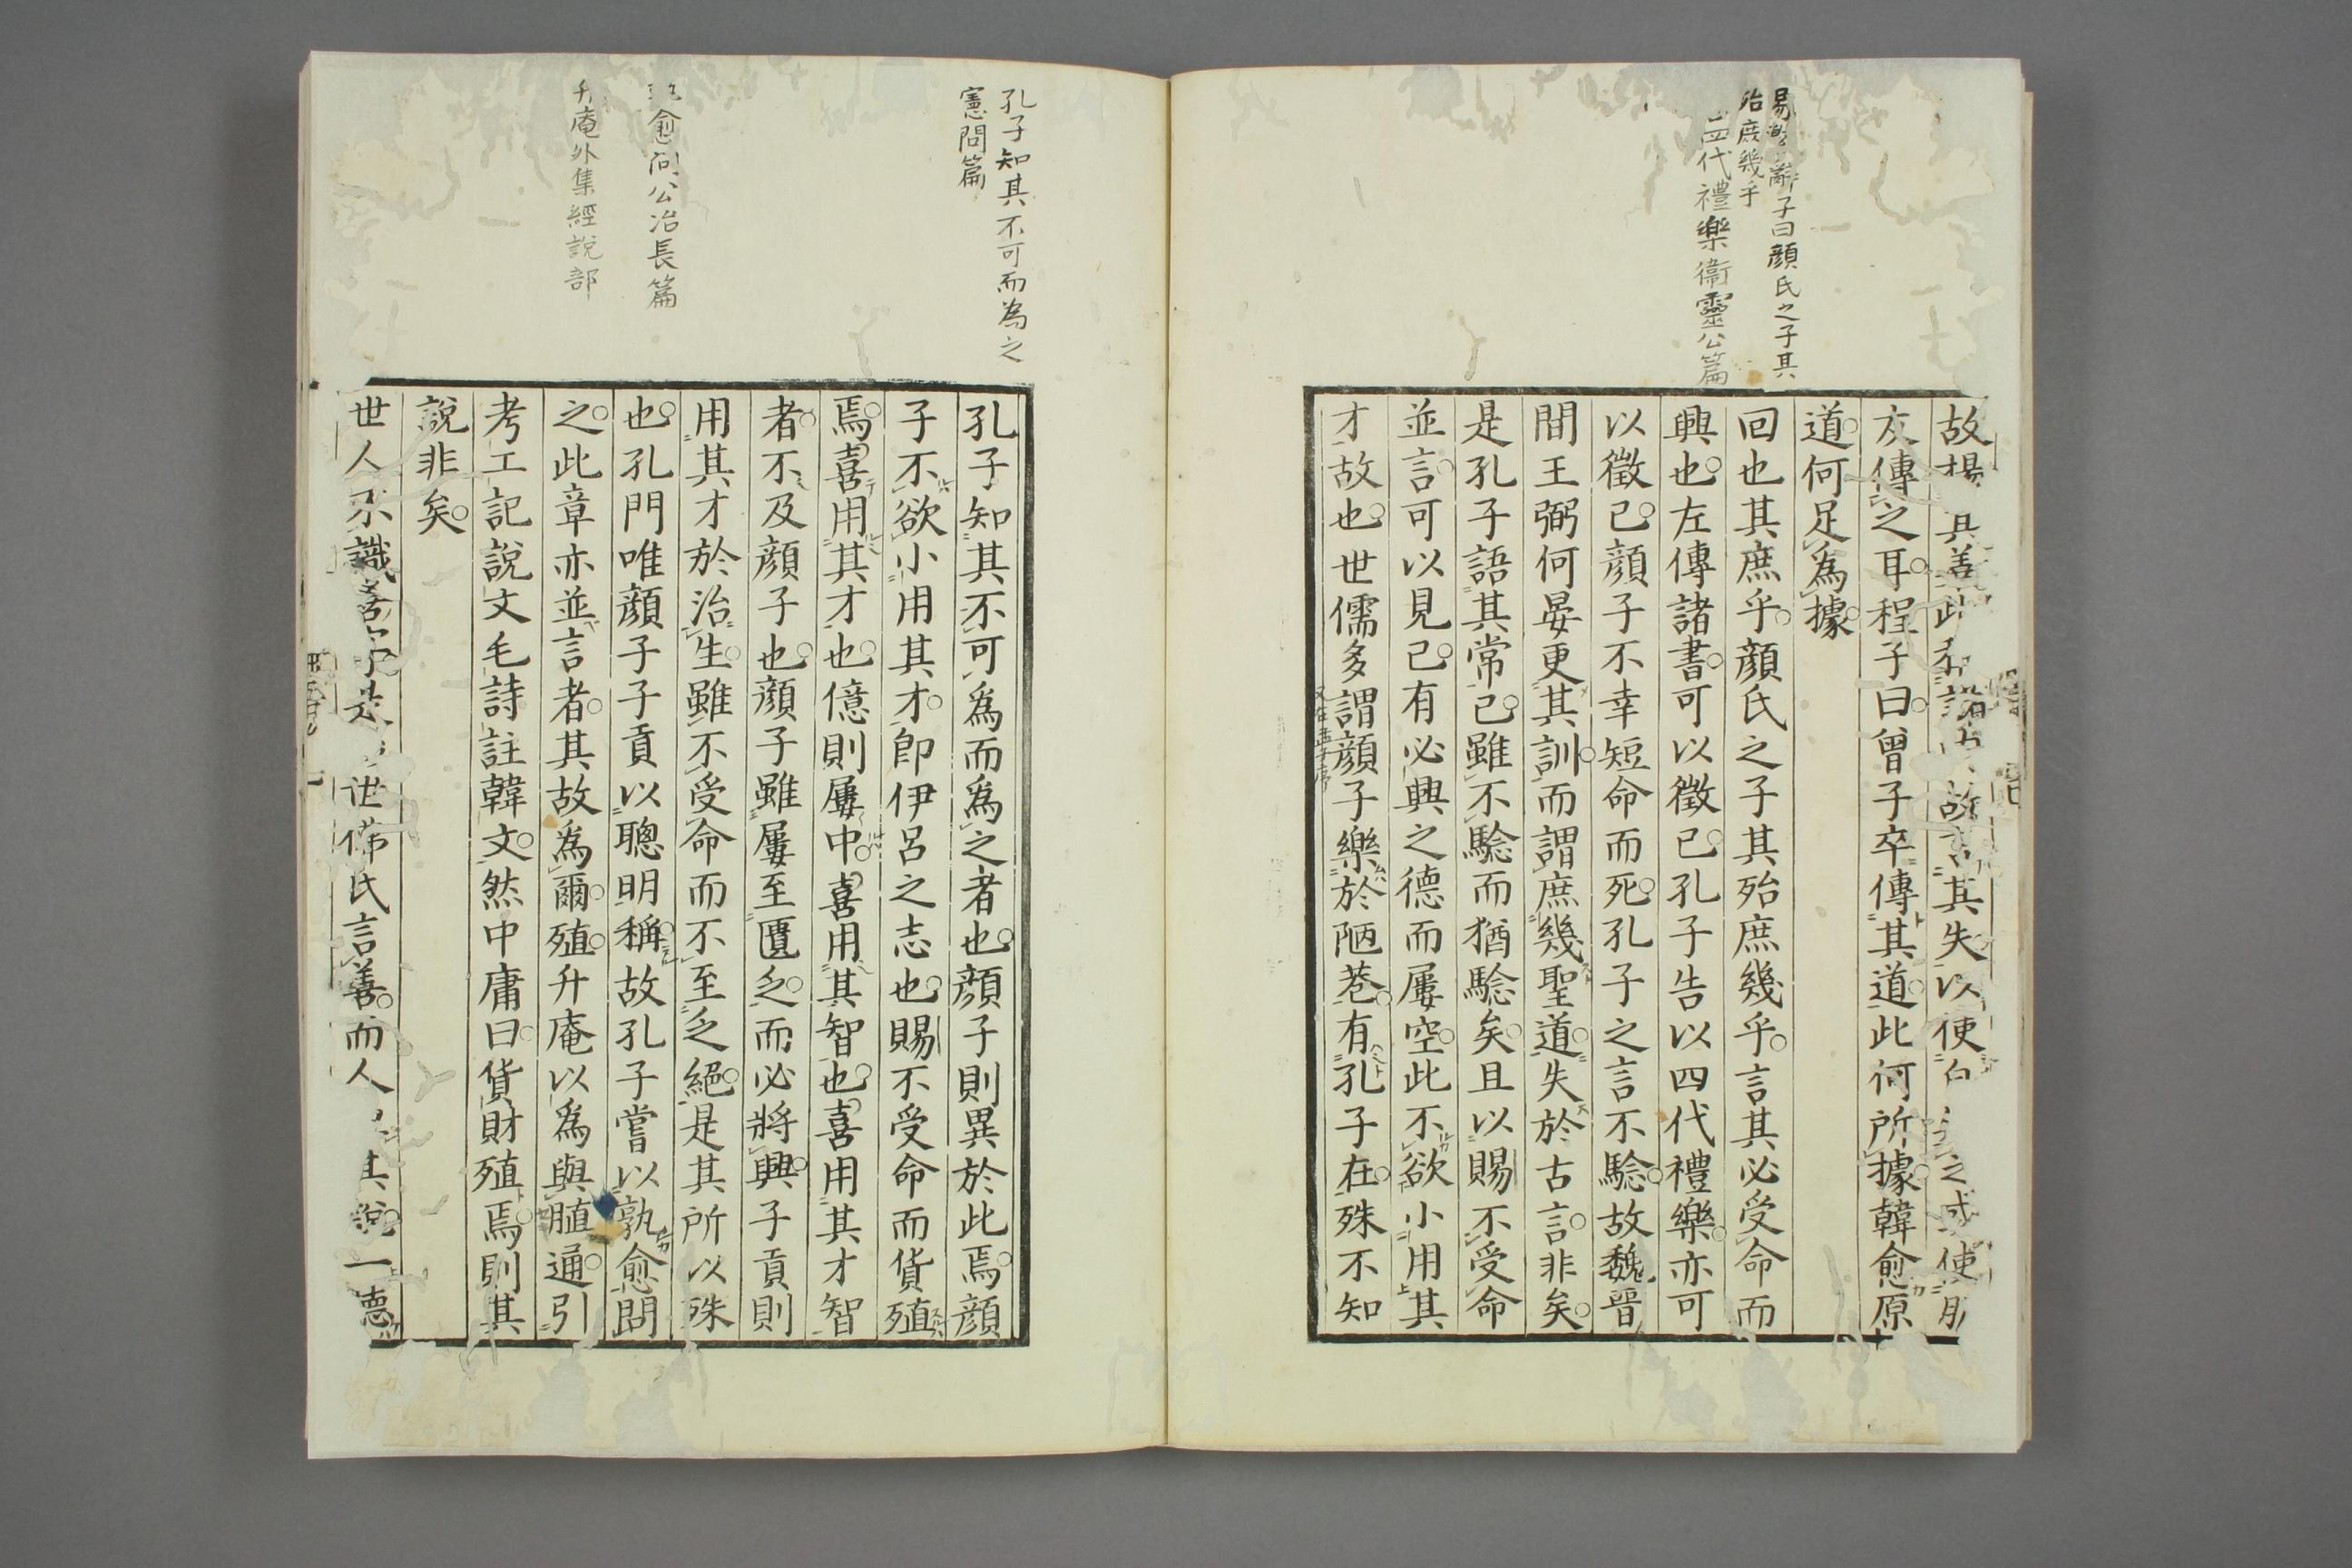 子曰顔氏之子其
殆庶幾乎
四代禮樂衞靈公篇
故揚其善此 故言其失以使 之 使
友傳之耳程子曰曾子卒傳其道此何所據韓愈原
道何足爲據
回也其庶乎顔氏之子其殆庶幾乎言其必受命而
興也左傳諸書可以徵已孔子告以四代禮樂亦可
以徵已顔子不幸短命而死孔子之言不驗故魏晉
間王弼何晏更其訓而謂庶幾聖道失於古言非矣
是孔子語其常已雖不驗而猶驗矣且以賜不受命
並言可以見已有必興之德而屢空此不欲小用其
才故也世儒多謂顔子樂於陋巷有孔子在殊不知
孔子知其不可而為之
憲問篇
愈問公冶長篇
升庵外集經說部
孔子知其不可爲而爲之者也顔子則異於此焉顔
子不欲小用其才卽伊呂之志也賜不受命而貨殖
焉喜用其才也億則屢中喜用其智也喜用其才智
者不及顔子也顔子雖屢至匱乏而必將興子貢則
用其才於治生雖不受命而不至乏絕是其所以殊
也孔門唯顔子子貢以聰明稱故孔子嘗以孰愈問
之此章亦並言者其故爲爾殖升庵以爲與脜通引
考工記說文毛詩註韓文然中庸曰貨財殖焉則其
說非矣
世人不識善字是 世佛氏言善而人 其說一德